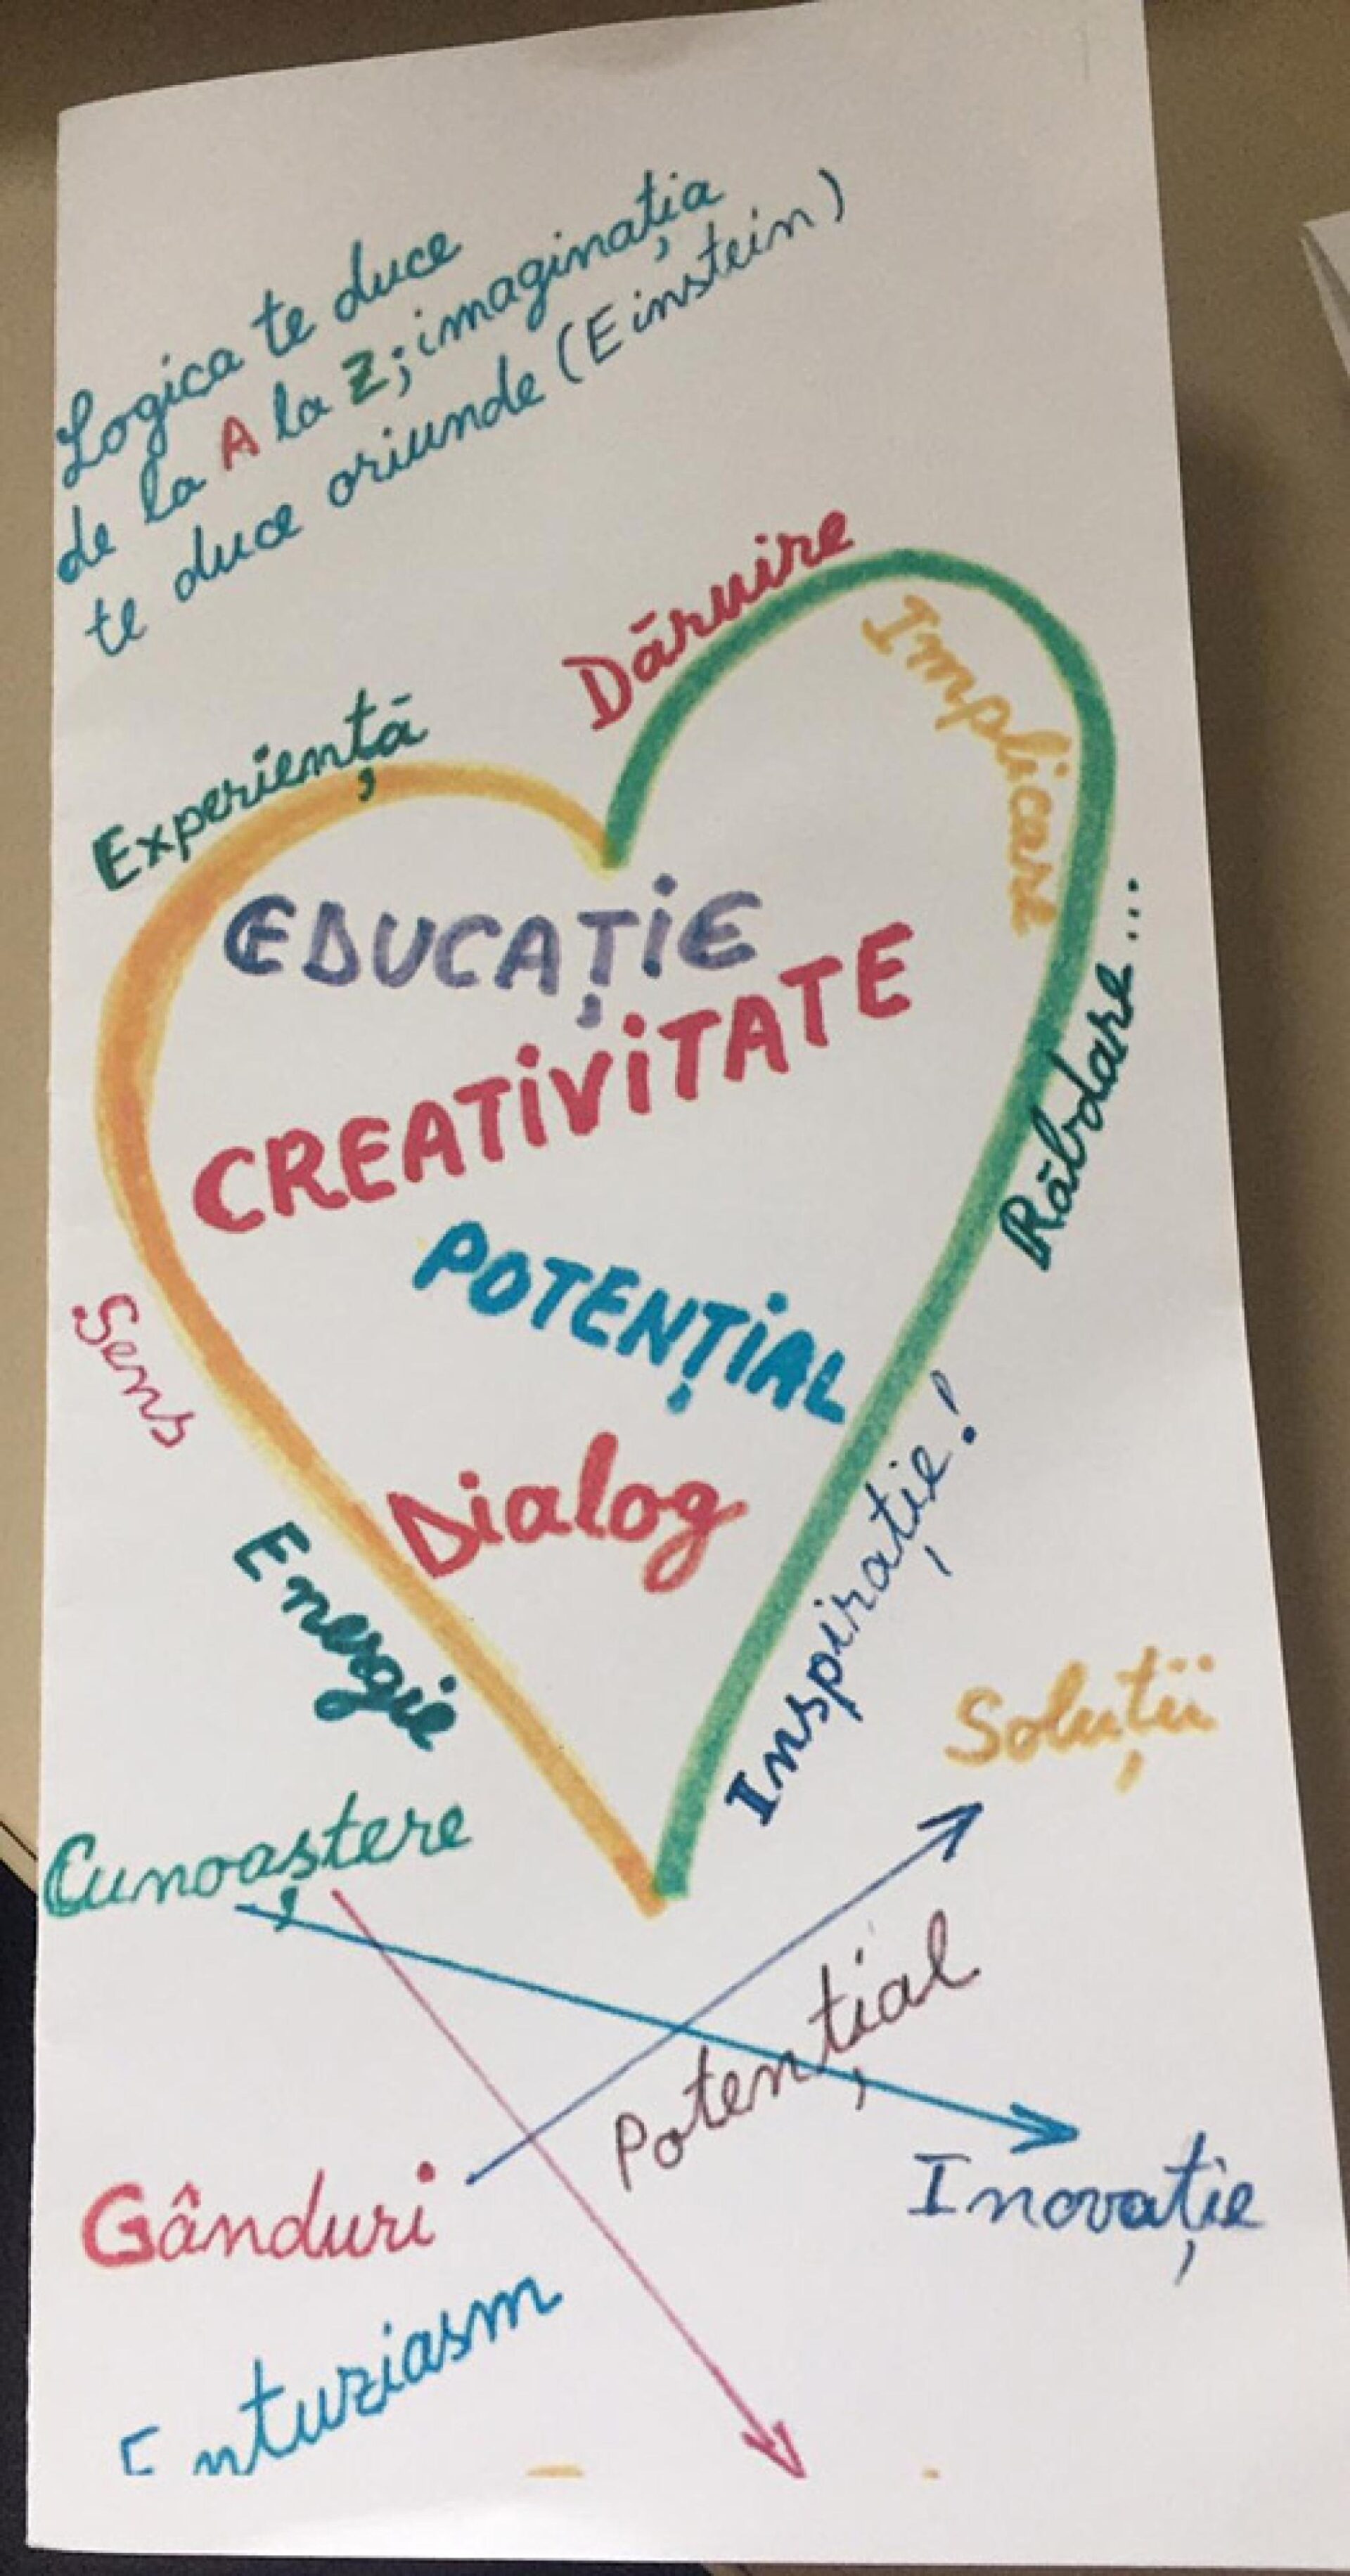 Logica te duce
de la A la Z; imaginația
te duce oriunde (Einstein)
Dăruire
Implicare
Experiență
EDUCAȚIE
CREATIVITATE
Răbdare...
POTENȚIAL
Sens
Dialog
Energie
Inspirație!
Soluții
Cunoaștere
Potențial
Gânduri
Inovație
Enturiasm